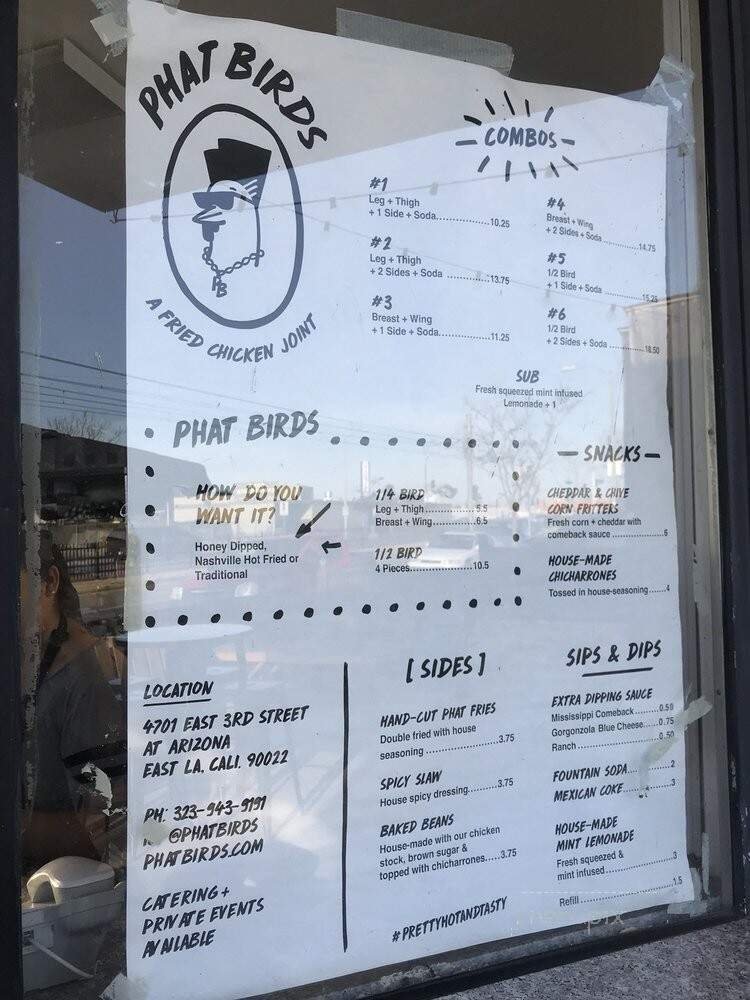 PHAT BIRDS
PB
A FRIED CHICKEN JOINT
COMBOS
#1
Leg + Thigh
+ 1 Side + Soda.....................10.25
#2
Leg + Thigh
+ 2 Sides + Soda ...............13.75
#3
Breast + Wing
+ 1 Side + Soda.....................11.25
#4
Breast + Wing
+ 2 Sides + Soda..............14.75
#5
1/2 Bird
+ 1 Side + Soda................15.25
#6
1/2 Bird
+ 2 Sides + Soda ..............18.50
SUB
Fresh squeezed mint infused
Lemonade + 1
PHAT BIRDS
HOW DO YOU
WANT IT?
Honey Dipped,
Nashville Hot Fried or
Traditional
1/4 BIRD
Leg + Thigh..................5.5
Breast + Wing...............6.5
1/2 BIRD
4 Pieces......................10.5
SNACKS
CHEDDAR & CHIVE
CORN FRITTERS
Fresh corn + cheddar with
comeback sauce ...................6
HOUSE-MADE
CHICHARRONES
Tossed in house-seasoning......4
LOCATION
4701 EAST 3RD STREET
AT ARIZONA
EAST LA, CALI, 90022
PH: 323-943-9191
@PHATBIRDS
PHATBIRDS.COM
CATERING +
PRIVATE EVENTS
AVAILABLE
[SIDES]
HAND-CUT PHAT FRIES
Double fried with house
seasoning .......................3.75
SPICY SLAW
House spicy dressing..........3.75
BAKED BEANS
House-made with our chicken
stock, brown sugar &
topped with chicharrones.....3.75
#PRETTYHOTANDTASTY
SIPS & DIPS
EXTRA DIPPING SAUCE
Mississippi Comeback.......0.50
Gorgonzola Blue Cheese.....0.75
Ranch..............................0.50
FOUNTAIN SODA..............2
MEXICAN COKE...............3
HOUSE-MADE
MINT LEMONADE
Fresh squeezed &
mint infused.......................3
Refill ................................1.5